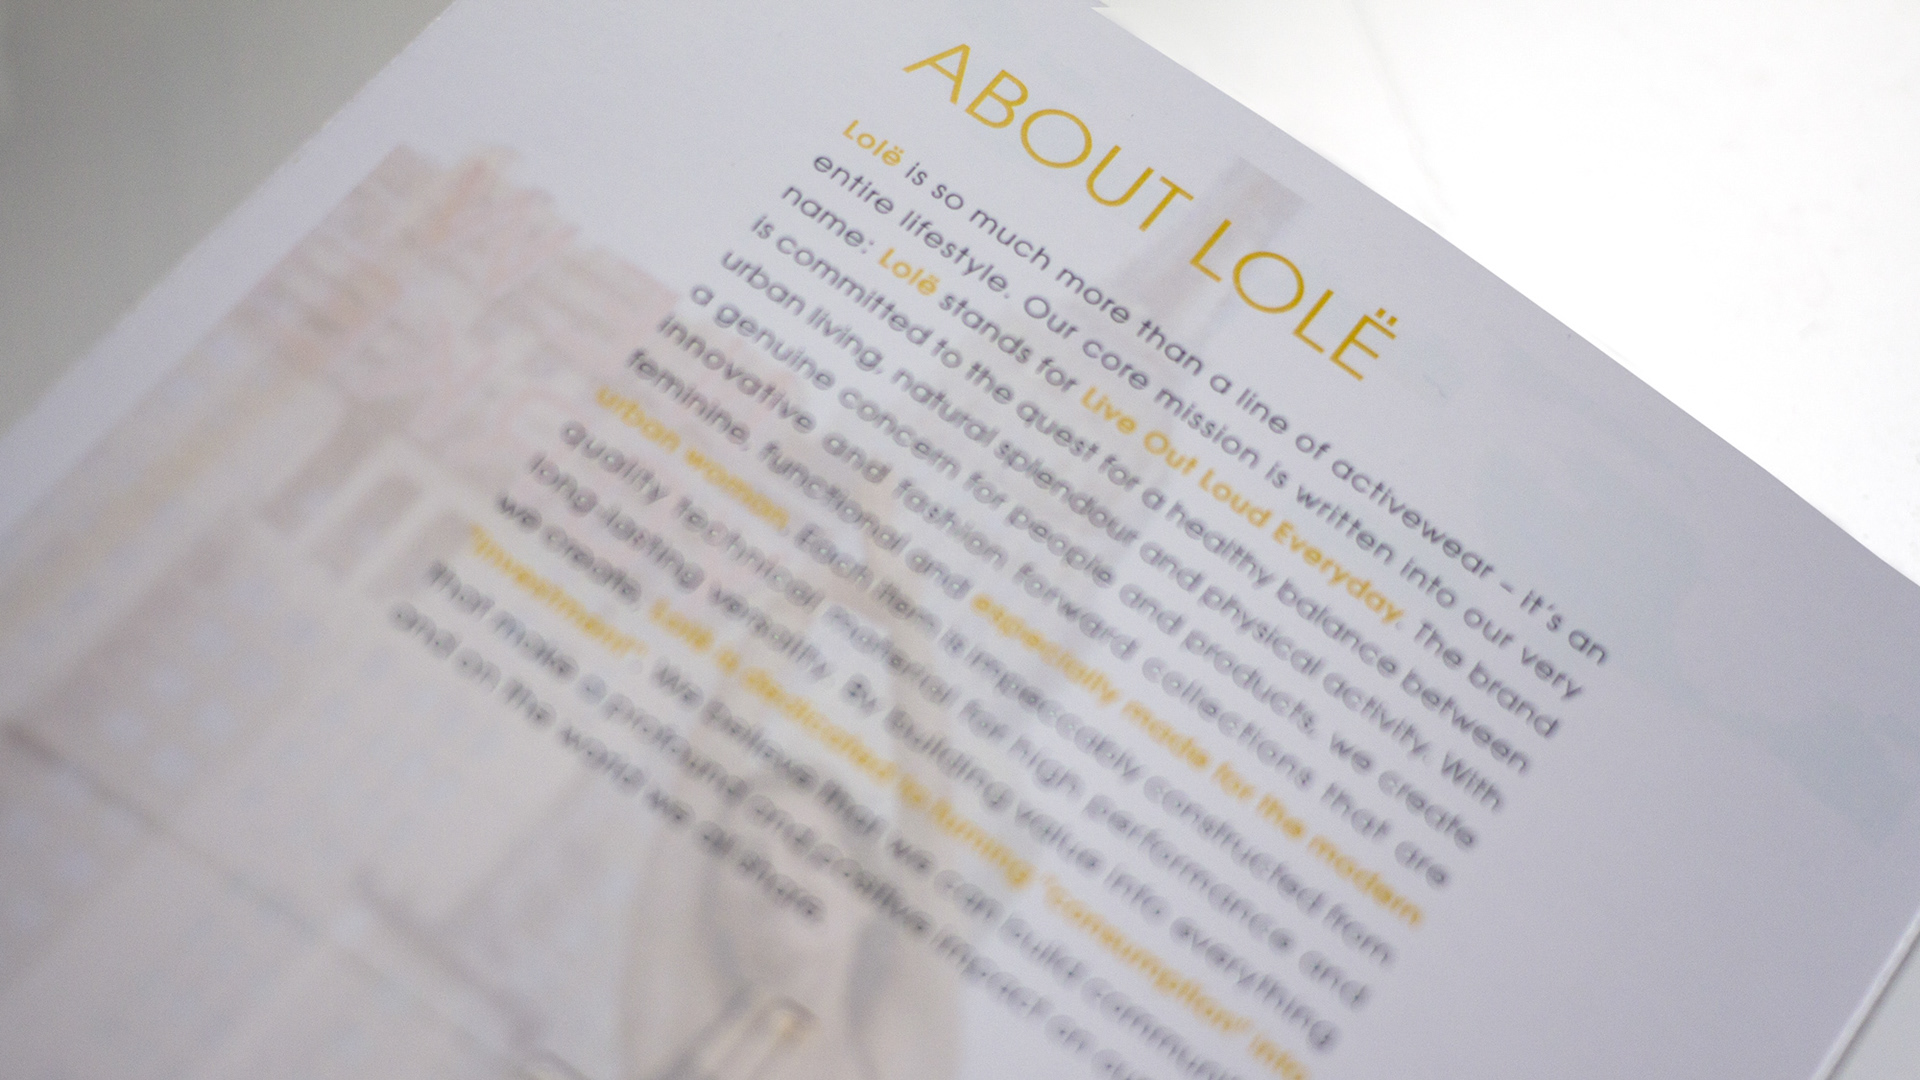 ABOUT LOLË
Lolë is so much more than a line of activewear – it's an
entire lifestyle. Our core mission is written into our very
name: Lolë stands for Live Out Loud Everyday. The brand
is committed to the quest for a healthy balance between
urban living, natural splendour and physical activity. With
a genuine concern for people and products, we create
innovative and fashion forward collections that are
feminine, functional and especially made for the modern
urban woman. Each item is impeccably constructed from
quality technical material for high performance and
long-lasting versality. By building value into everything
we create, Lolë is dedicated to turning "consumption" into
"investment". We believe that we can build
that make a profound and positive impact on
and on the world we all share.